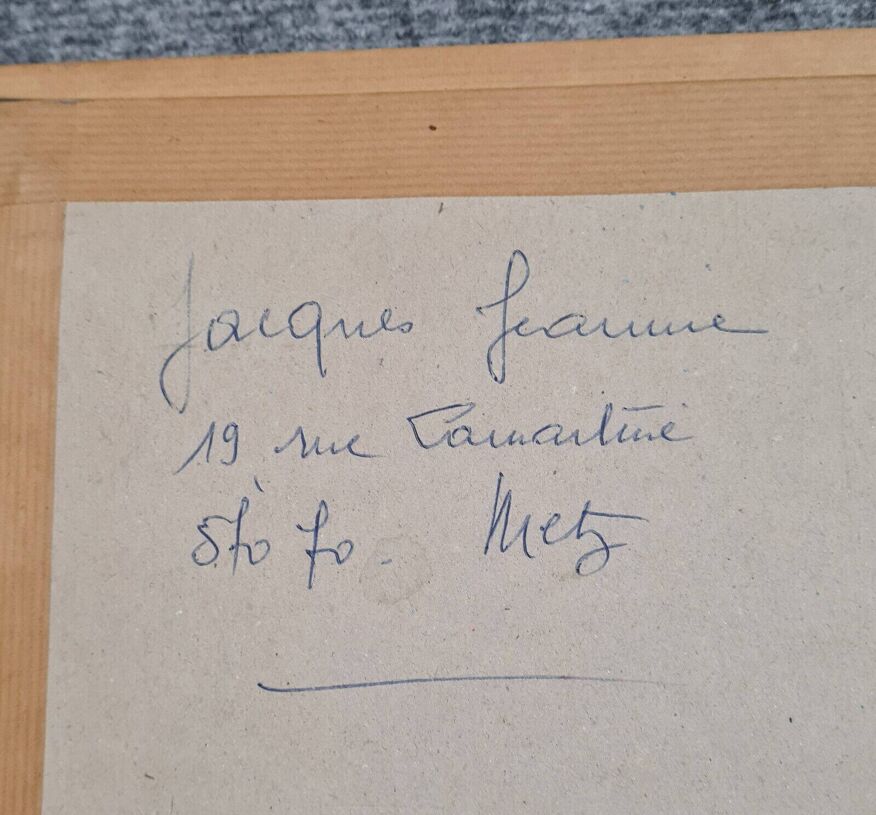 Jacques Jeanne
19 rue Lamartine
570 70. Metz